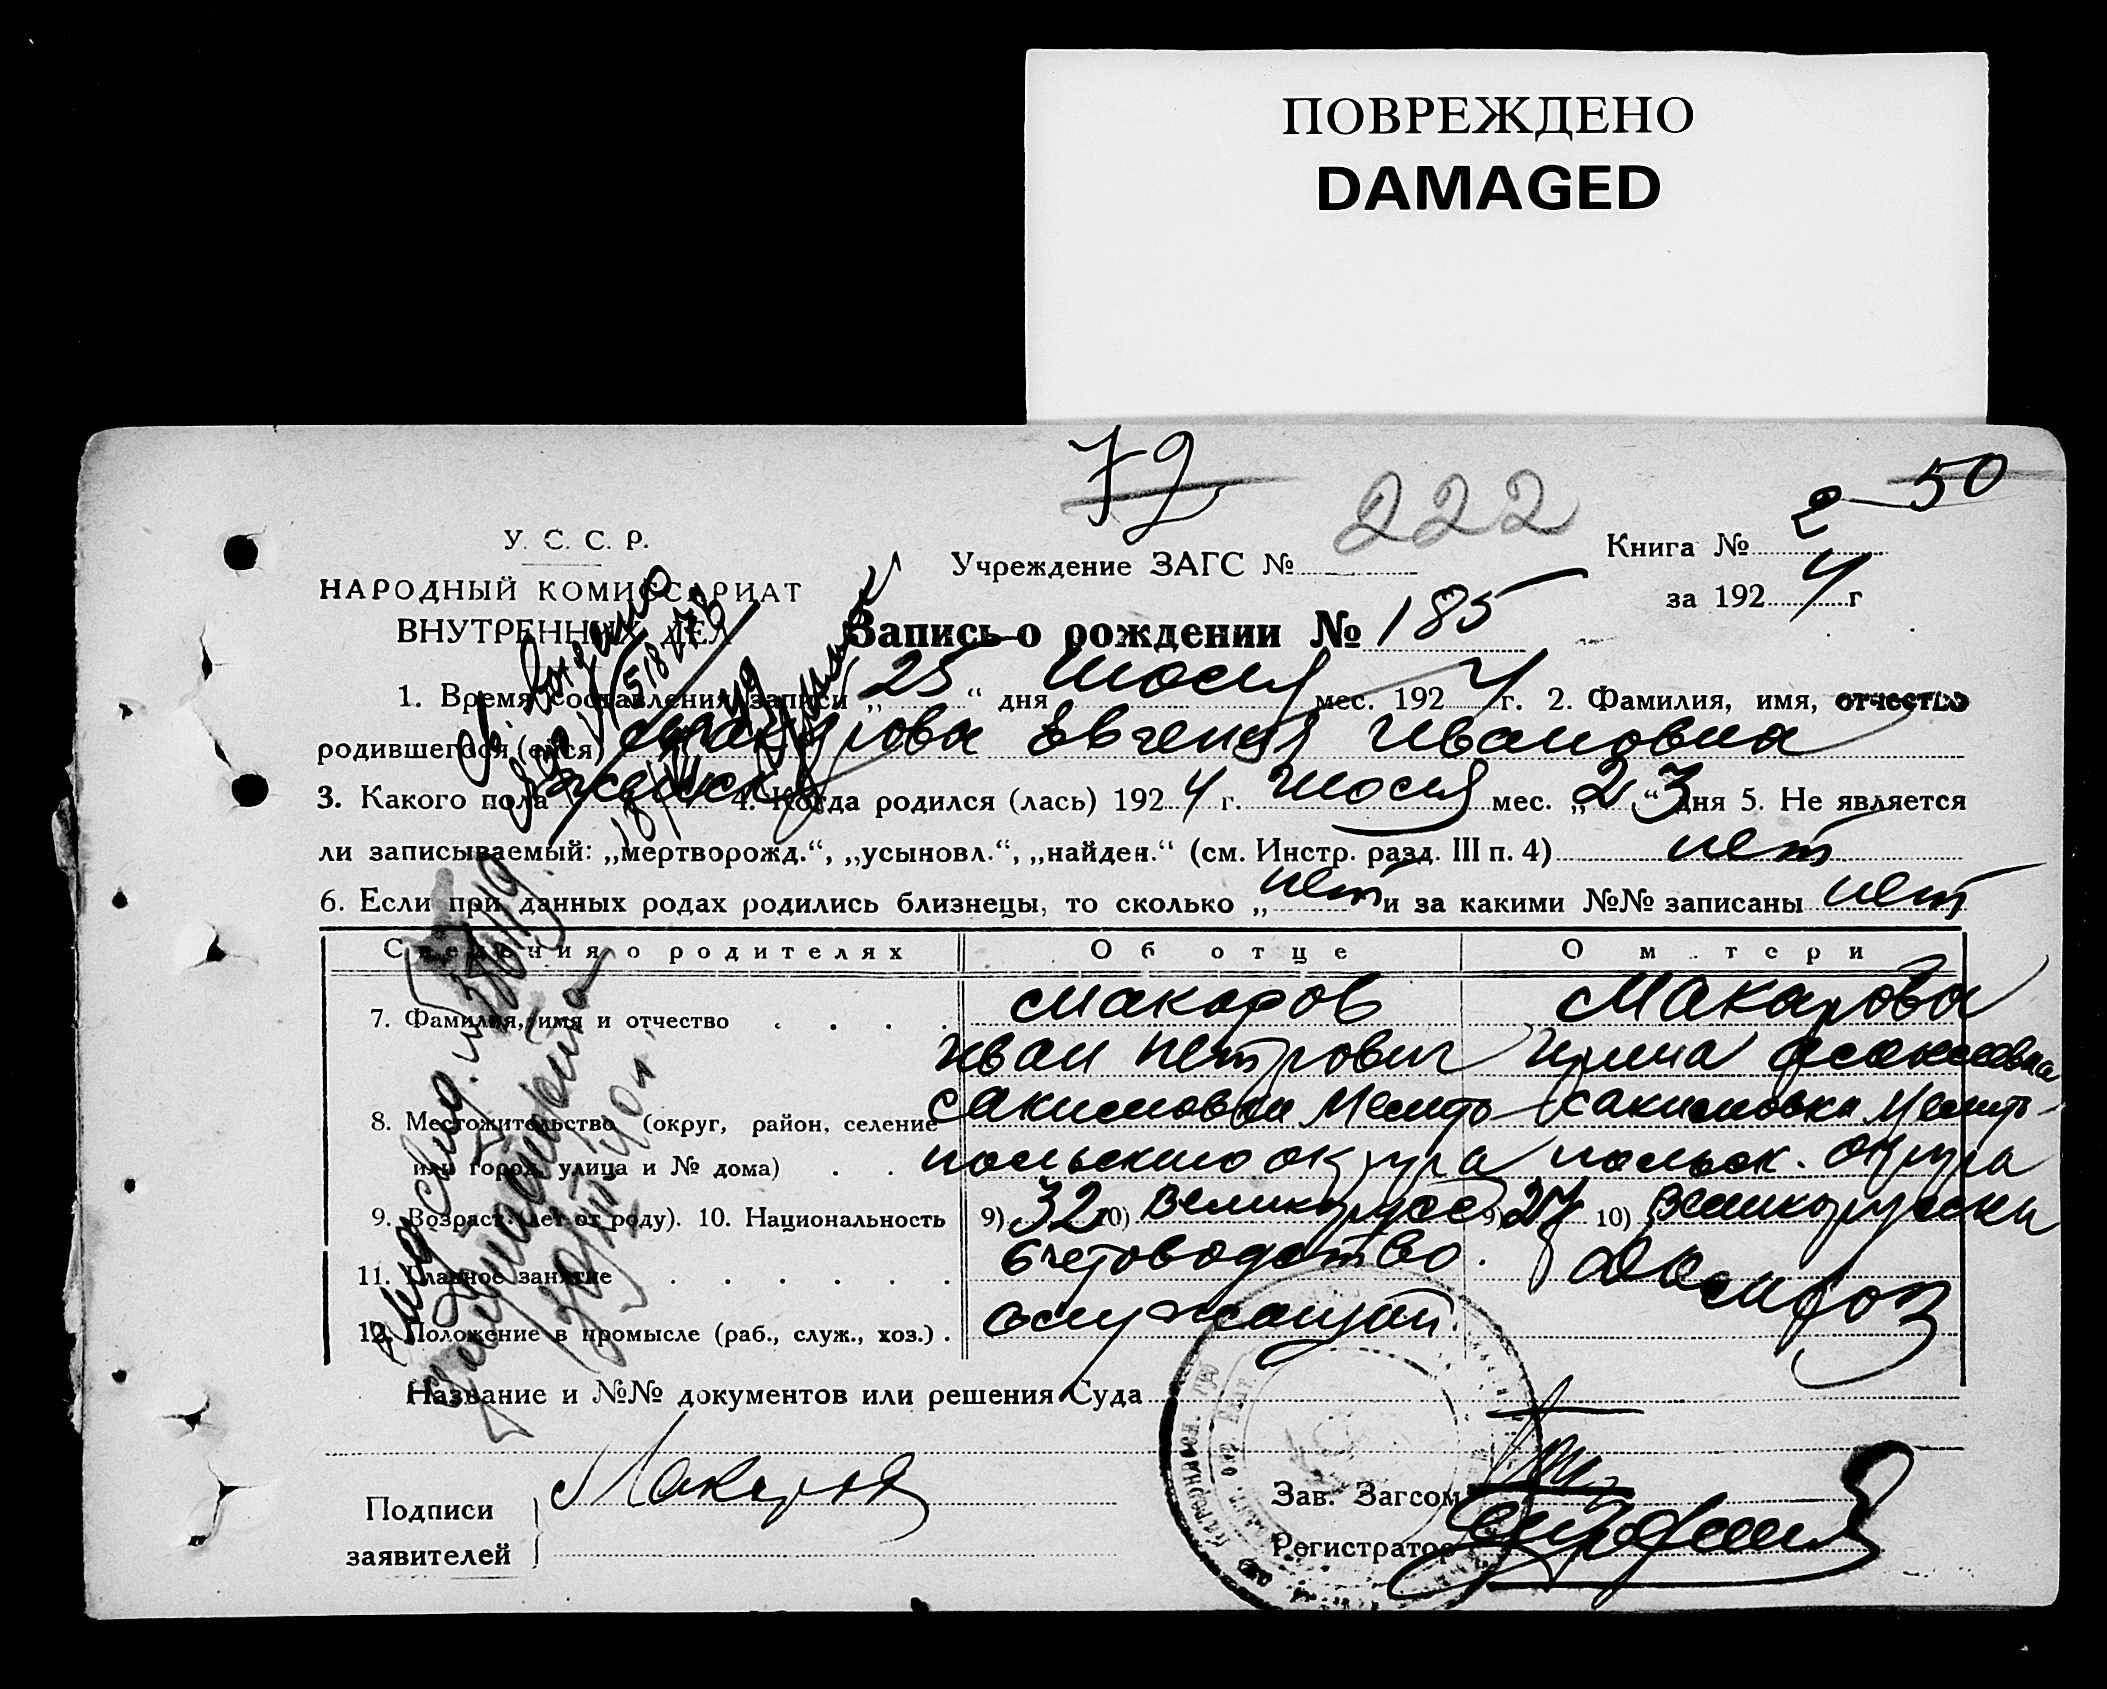 ПОВРЕЖДЕНО
DAMAGED
72
222
2-50
У. С. С. Р.
НАРОДНЫЙ КОМИССАРИАТ
ВНУТРЕННИХ ДЕЛ
Учреждение ЗАГС №
Книга № 2
за 192 4 г
Запись о рождении № 185
1. Время составления записи „ 25 “ дня Июля мес. 192 4 г. 2. Фамилия, имя, отчество
родившегося (ейся) Макарова Евгения Ивановна
3. Какого пола женск 4. Когда родился (лась) 192 4 г. Июля мес. „ 23 “ дня 5. Не является
ли записываемый: „мертворожд.“, „усыновл.“, „найден.“ (см. Инстр. разд. III п. 4) нет
6. Если при данных родах родились близнецы, то сколько „ нет и за какими №№ записаны нет
Сведения о родителях Об отце О м тери
7. Фамилия, имя и отчество Макаров Макарова
Иван Петрович Ирина
8. Местожительство (округ, район, селение Мелито Мелито
или город, улица и № дома) польского округа польск. округа
9. Возраст (лет от роду). 10. Национальность 9) 32 10) Великорусс 9) 27 10) Великорусска
11. Главное занятие Счетоводство Домохоз
12. Положение в промысле (раб., служ., хоз.) служащий
Название и №№ документов или решения Суда
Подписи
заявителей
Макаров
Зав. Загсом
Регистратор